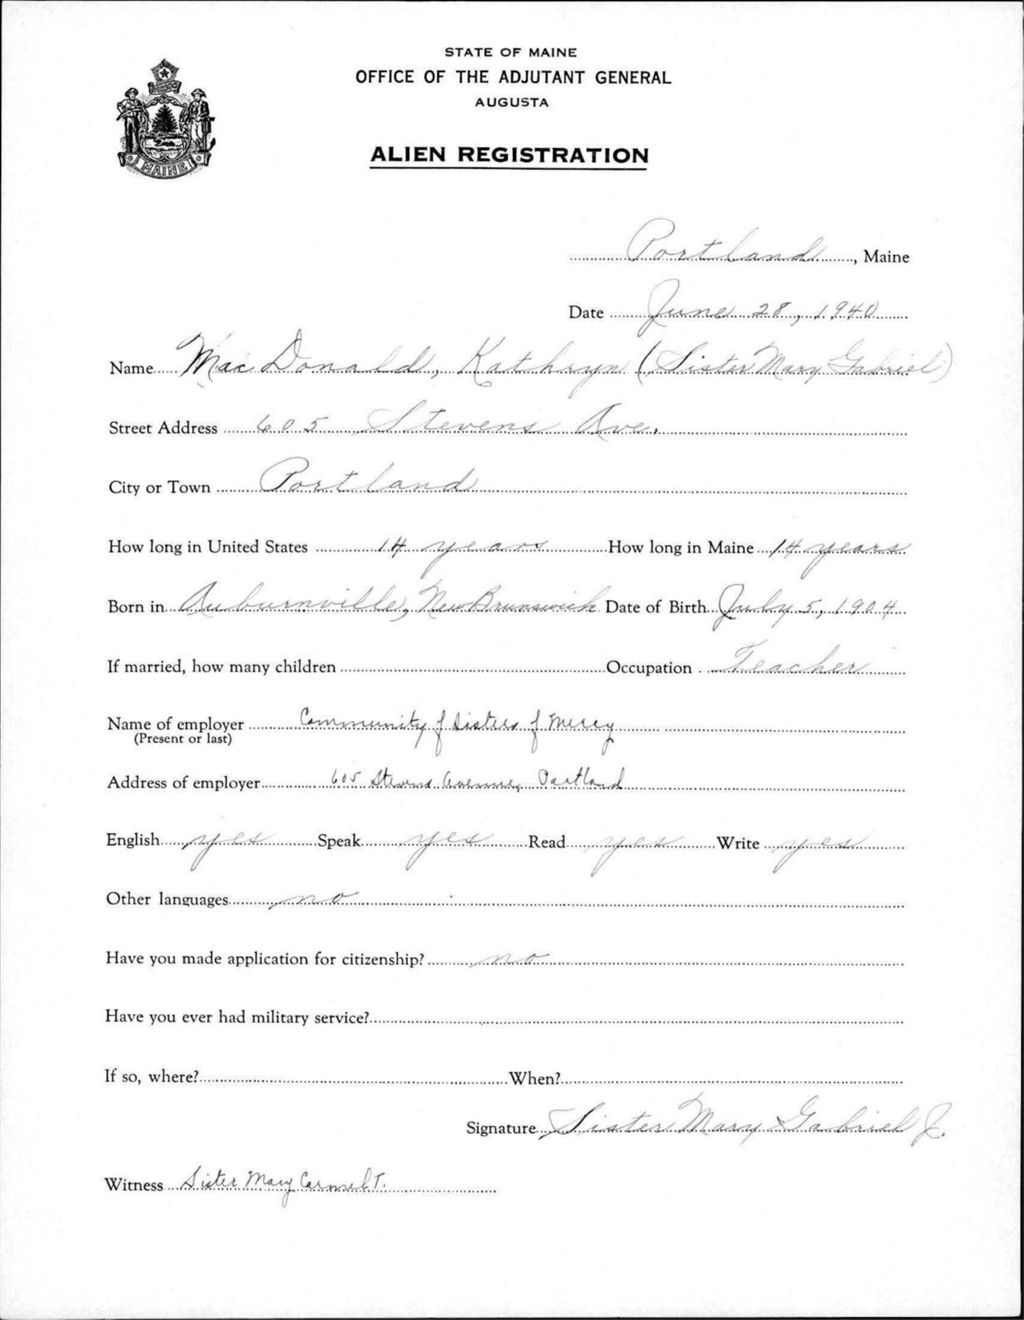 STATE OF MAINE
OFFICE OF THE ADJUTANT GENERAL
AUGUSTA
ALIEN REGISTRATION
MAINE
Portland, Maine
Date June 28, 1940
Name MacDonald, Kathryn (Sister Mary Gabriel)
Street Address 605 Stevens Ave.
City or Town Portland
How long in United States 14 years How long in Maine 14 years
Born in Auburnville, New Brunswick Date of Birth July 5, 1904
If married, how many children Occupation Teacher
Name of employer Community of Sisters of Mercy
(Present or last)
Address of employer 605 Stevens Avenue, Portland
English yes Speak yes Read yes Write yes
Other languages no
Have you made application for citizenship? no
Have you ever had military service?
If so, where? When?
Signature Sister Mary Gabriel J.
Witness Sister Mary Carmel T.